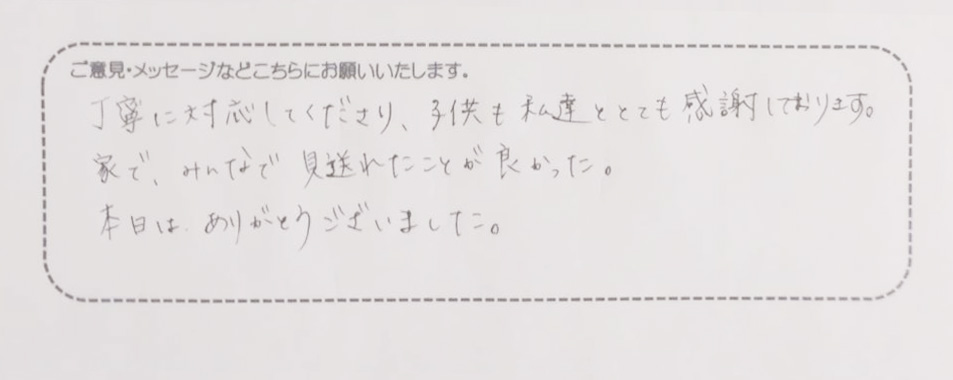 ご意見・メッセージなどこちらにお願いいたします。
丁寧に対応してくださり、子供も私達ととても感謝しております。
家で、みんなで見送れたことが良かった。
本日は、ありがとうございました。